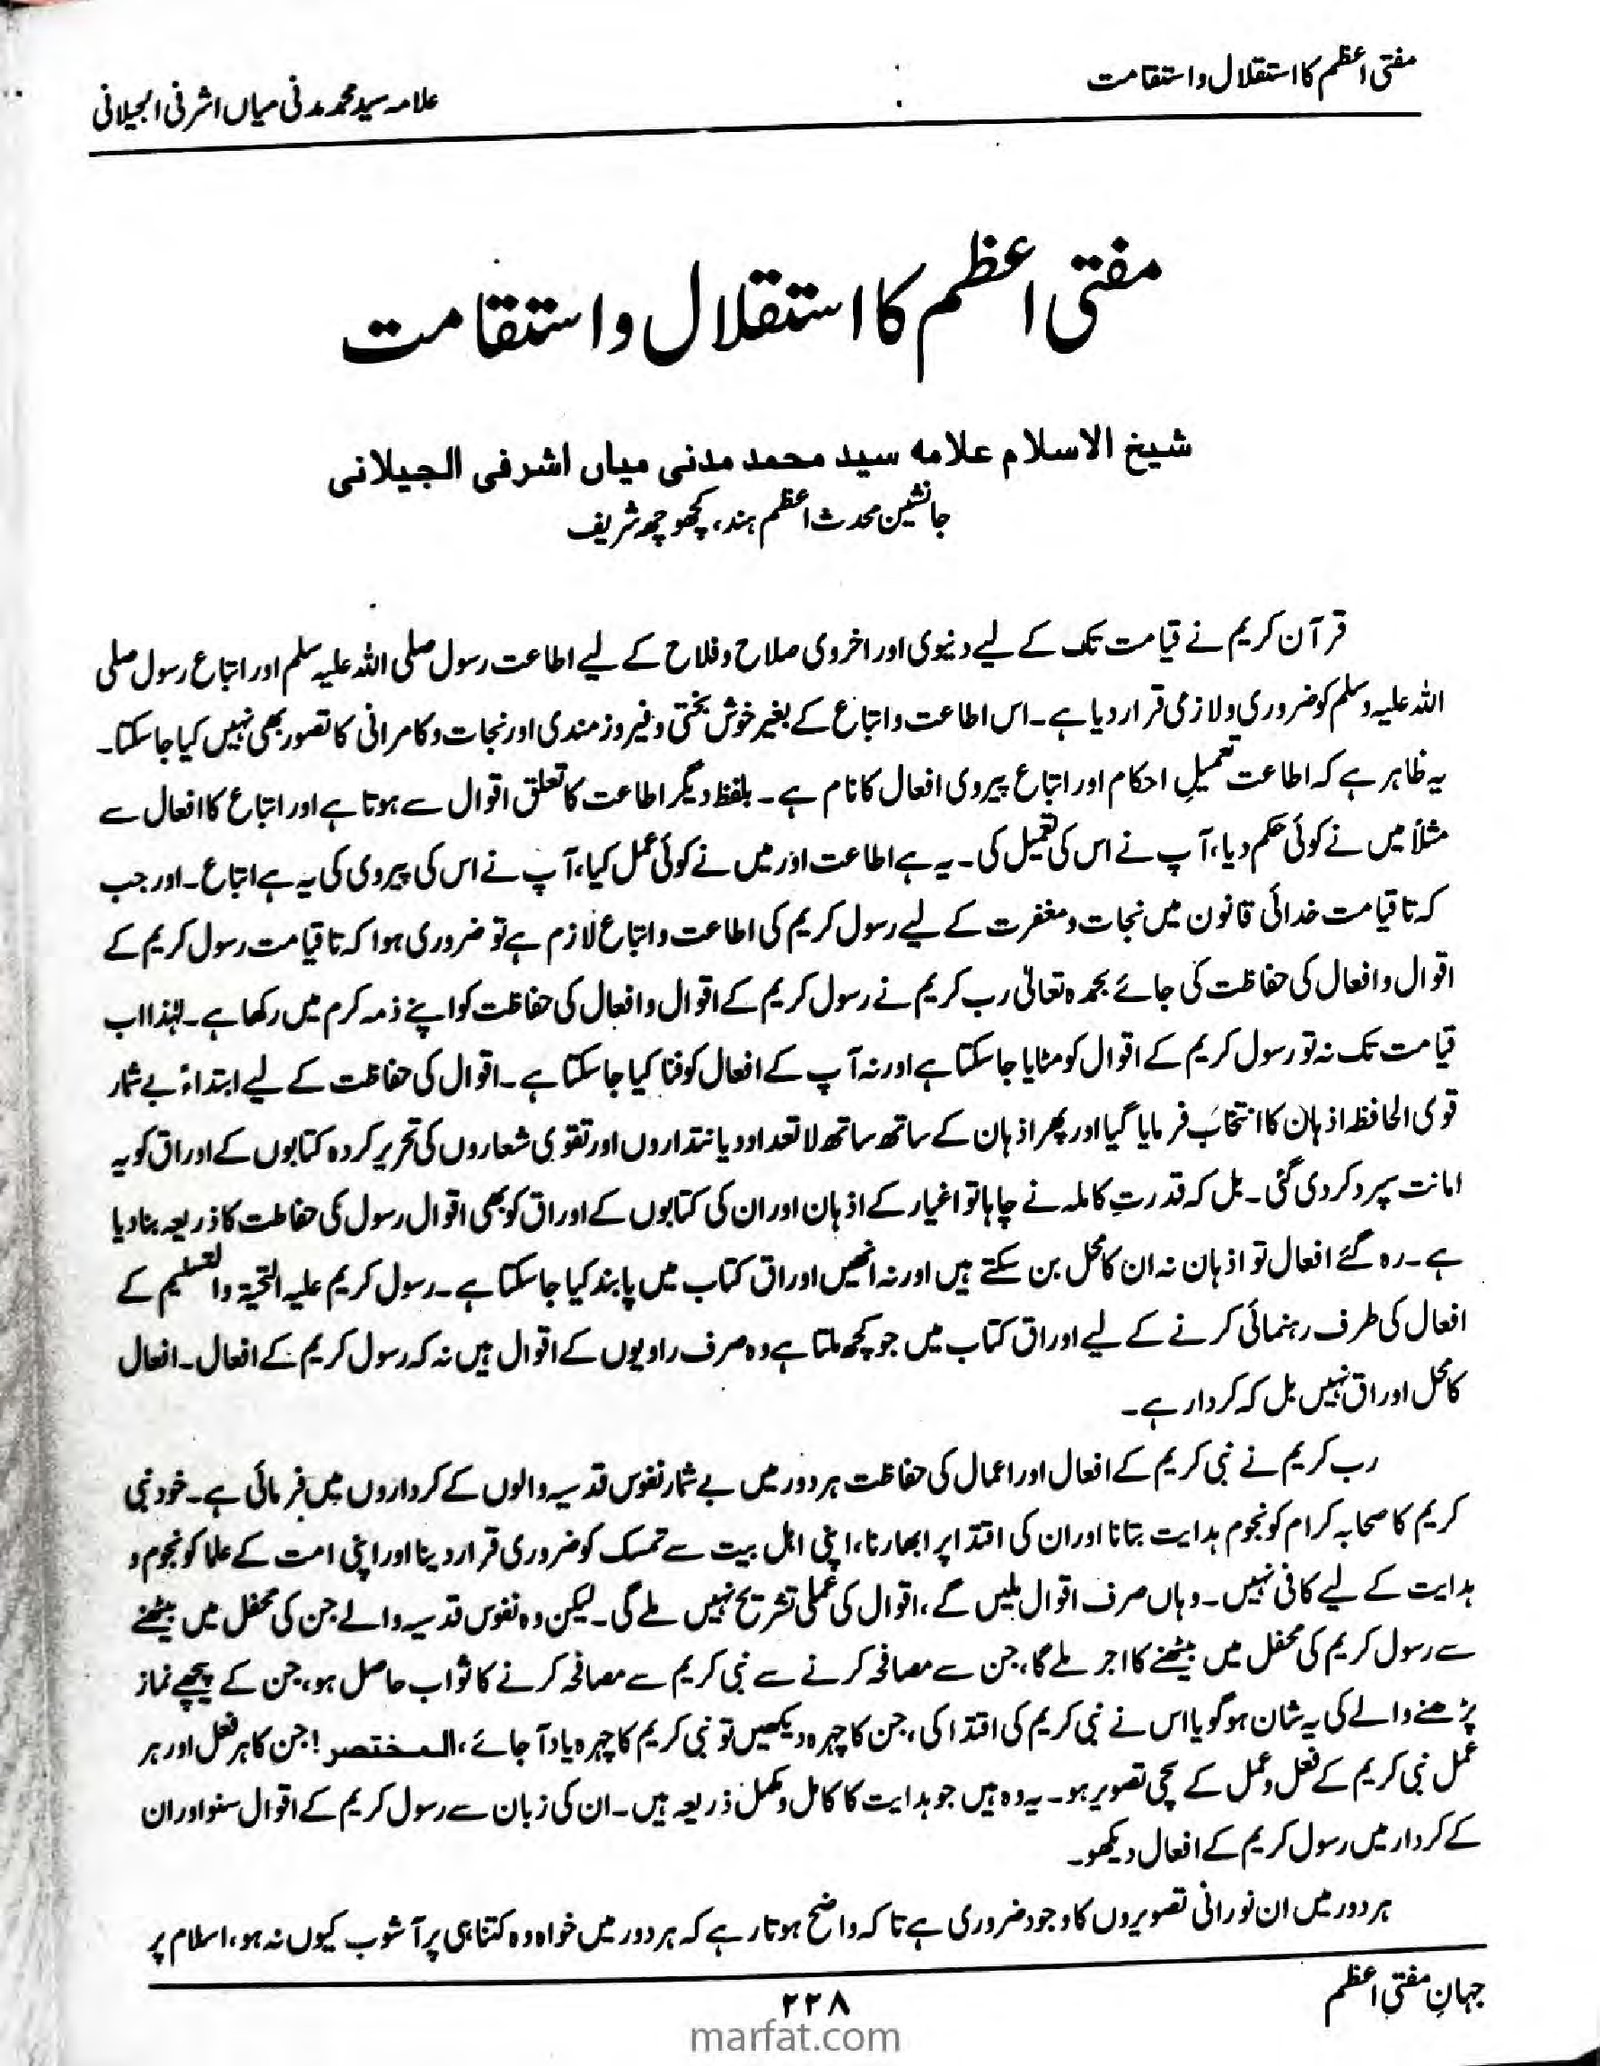 مفتی اعظم کا استقلال و استقامت
علامہ سید محمد مدنی میاں اشرفی الجیلانی
مفتی اعظم کا استقلال و استقامت
شیخ الاسلام علامه سید محمد مدنی میاں اشرفی الجیلانی
جانشین محدث اعظم ہند، کچھوچھ شریف
قرآن کریم نے قیامت تک کے لیے دنیوی اور اخروی صلاح و فلاح کے لیے اطاعت رسول صلی اللہ علیہ وسلم اور اتباع رسول صلی
اللہ علیہ وسلم کو ضروری و لازمی قرار دیا ہے۔ اس اطاعت و اتباع کے بغیر خوش بختی و فیروز مندی اور نجات و کامرانی کا تصور بھی نہیں کیا جا سکتا۔
یہ ظاہر ہے کہ اطاعت تعمیلِ احکام اور اتباع پیروی افعال کا نام ہے۔ بلفظ دیگر اطاعت کا تعلق اقوال سے ہوتا ہے اور اتباع کا افعال سے
مثلاً میں نے کوئی حکم دیا، آپ نے اس کی تعمیل کی۔ یہ ہے اطاعت اور میں نے کوئی عمل کیا، آپ نے اس کی پیروی کی یہ ہے اتباع۔ اور جب
کہ تا قیامت خدائی قانون میں نجات و مغفرت کے لیے رسول کریم کی اطاعت و اتباع لازم ہے تو ضروری ہوا کہ تا قیامت رسول کریم کے
اقوال و افعال کی حفاظت کی جائے بحمدہ تعالیٰ رب کریم نے رسول کریم کے اقوال و افعال کی حفاظت کو اپنے ذمہ کرم میں رکھا ہے۔ لہٰذا اب
قیامت تک نہ تو رسول کریم کے اقوال کو مٹایا جا سکتا ہے اور نہ آپ کے افعال کو فنا کیا جا سکتا ہے۔ اقوال کی حفاظت کے لیے ابتداءً بے شمار
قوی الحافظہ اذہان کا انتخاب فرمایا گیا اور پھر اذہان کے ساتھ ساتھ لا تعداد دیانتداروں اور تقوی شعاروں کی تحریر کردہ کتابوں کے اوراق کو یہ
امانت سپرد کر دی گئی۔ بل کہ قدرتِ کاملہ نے چاہا تو اغیار کے اذہان اور ان کی کتابوں کے اوراق کو بھی اقوال رسول کی حفاظت کا ذریعہ بنا دیا
ہے۔ رہ گئے افعال تو اذہان نہ ان کا محل بن سکتے ہیں اور نہ انھیں اوراق کتاب میں پابند کیا جا سکتا ہے۔ رسول کریم علیہ التحیۃ والتسلیم کے
افعال کی طرف رہنمائی کرنے کے لیے اوراق کتاب میں جو کچھ ملتا ہے وہ صرف راویوں کے اقوال ہیں نہ کہ رسول کریم کے افعال۔ افعال
کا محل اوراق نہیں بل کہ کردار ہے۔
رب کریم نے نبی کریم کے افعال اور اعمال کی حفاظت ہر دور میں بے شمار نفوس قدسیہ والوں کے کرداروں میں فرمائی ہے۔ خود نبی
کریم کا صحابہ کرام کو نجوم ہدایت بتانا اور ان کی اقتدا پر ابھارنا، اپنی اہل بیت سے تمسک کو ضروری قرار دینا اور اپنی امت کے علما کو نجوم و
ہدایت کے لیے کافی نہیں۔ وہاں صرف اقوال ملیں گے، اقوال کی عملی تشریح نہیں ملے گی۔ لیکن وہ نفوس قدسیہ والے جن کی محفل میں بیٹھنے
سے رسول کریم کی محفل میں بیٹھنے کا اجر ملے گا، جن سے مصافحہ کرنے سے نبی کریم سے مصافحہ کرنے کا ثواب حاصل ہو، جن کے پیچھے نماز
پڑھنے والے کی یہ شان ہو گویا اس نے نبی کریم کی اقتدا کی، جن کا چہرہ دیکھیں تو نبی کریم کا چہرہ یاد آ جائے، المختصر! جن کا ہر فعل اور ہر
عمل نبی کریم کے فعل و عمل کے سچی تصویر ہو۔ یہ وہ ہیں جو ہدایت کا کامل و مکمل ذریعہ ہیں۔ ان کی زبان سے رسول کریم کے اقوال سنو اور ان
کے کردار میں رسول کریم کے افعال دیکھو۔
ہر دور میں ان نورانی تصویروں کا وجود ضروری ہے تا کہ واضح ہوتا رہے کہ ہر دور میں خواہ وہ کتنا ہی پر آشوب کیوں نہ ہو، اسلام پر
جہانِ مفتی اعظم
۲۲۸
marfat.com